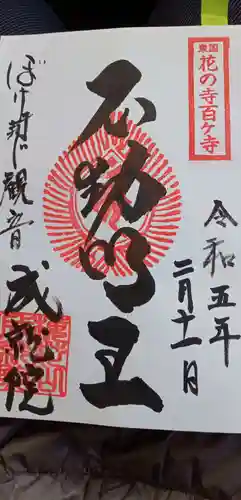 東国
花の寺百ヶ寺
令和五年
二月十一日
不動明王
ぼけ封じ観音
成就院